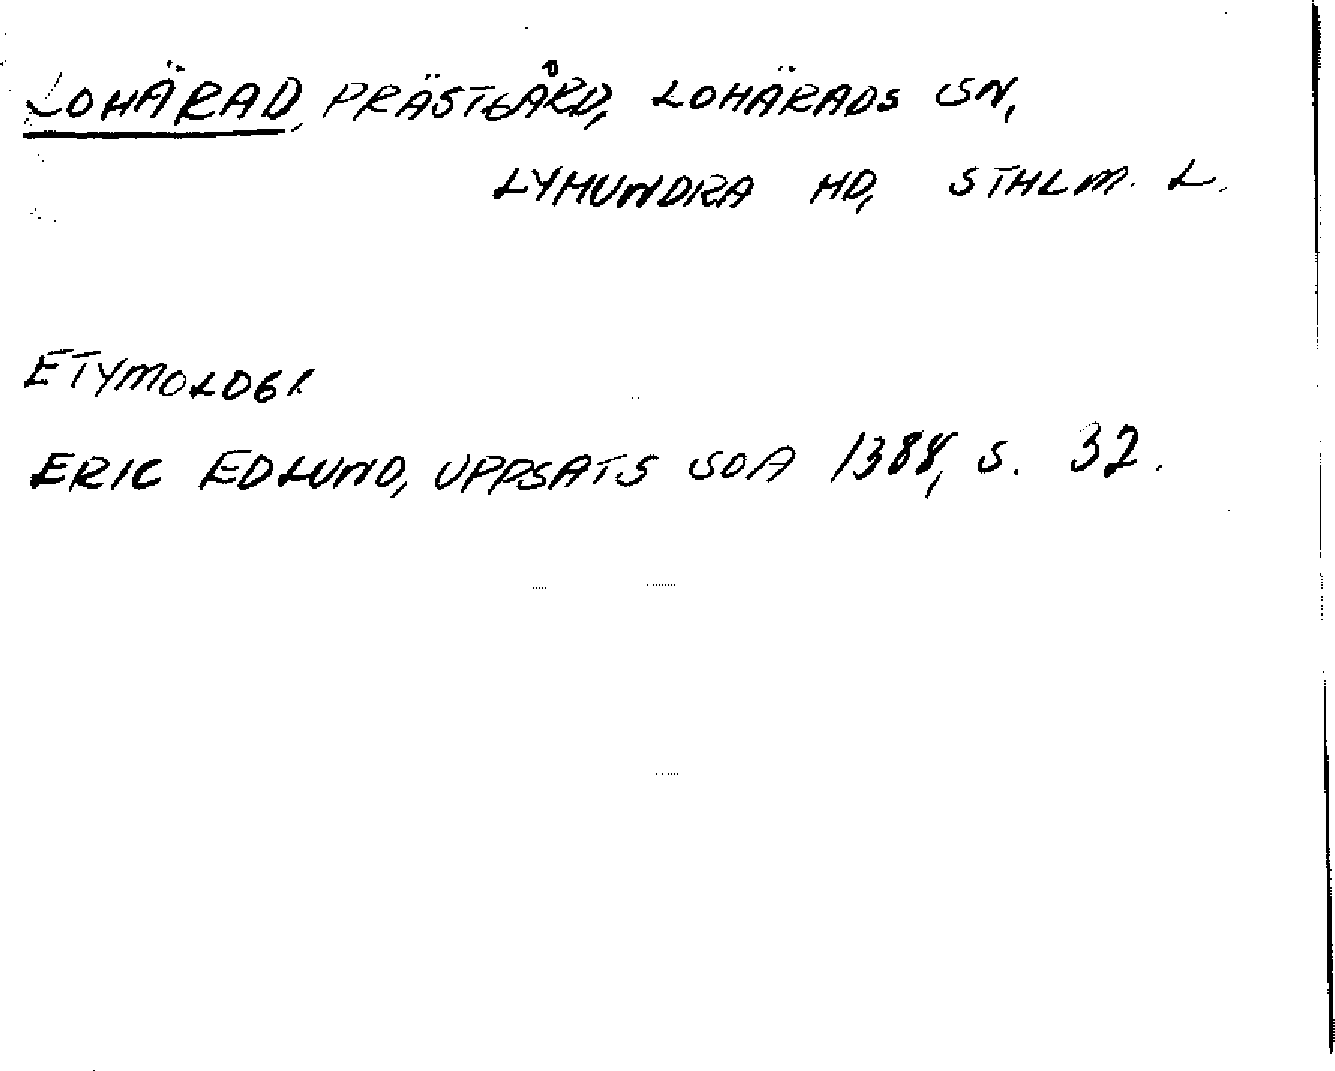 LOHÄRAD, PRÄSTGÅRD, LOHÄRADS SN,
LYHUNDRA HD, STHLM. L.
ETYMOLOGI.
ERIC EDLUND, UPPSATS SOA 1388, S. 32.